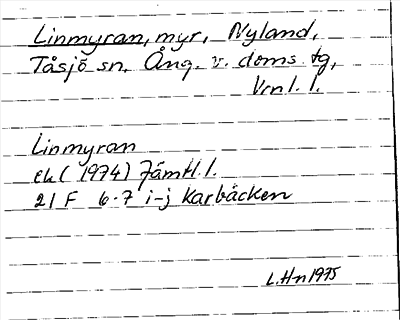 Linmyran, myr, Nyland,
Tåsjö sn. Ång. v. doms tg,
Vrnl. l.
Linmyran
ek ( 1974) Jämtl. l.
21 F 6-7 i-j Karbäcken
L.H-n 1975